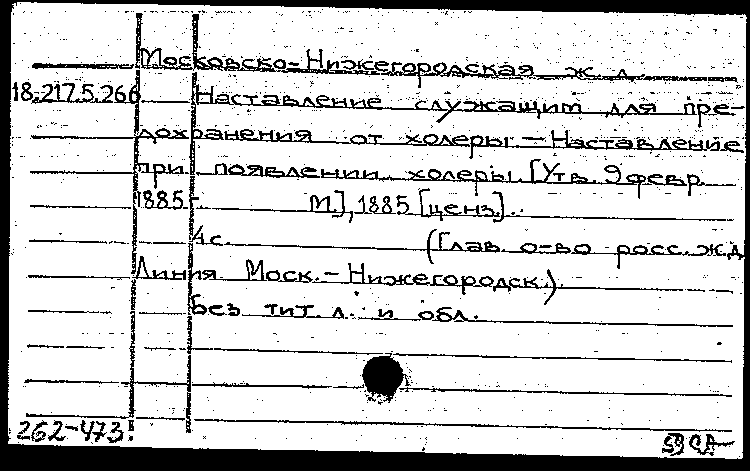 Московско-Нижегородская ж. д.
18.217.5.266 Наставление служащим для пре-
дохранения от холеры. — Наставление
при появлении холеры. [Утв. 9 февр.
1885 г. М.], 1885 [ценз.].
4 с. (Глав. о-во росс. ж.д.
Линия Моск.-Нижегородск.)
Без тит. л. и обл.
262-473.